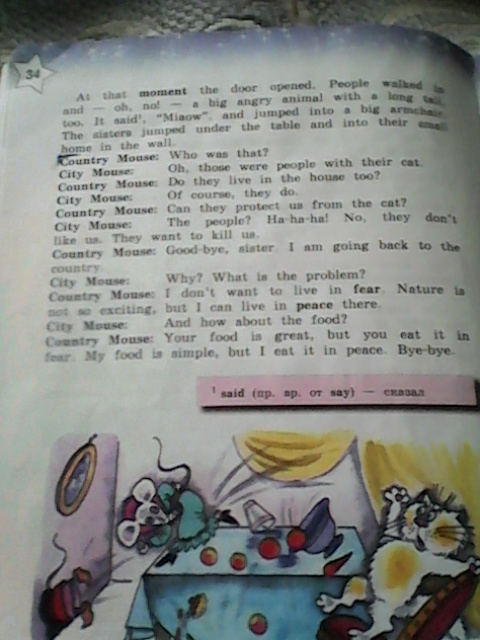 34
At that moment the door opened. People walked in
and — oh, no! — a big angry animal with a long tail,
too. It said¹, "Miaow", and jumped into a big armchair.
The sisters jumped under the table and into their small
home in the wall.
Country Mouse: Who was that?
City Mouse: Oh, those were people with their cat.
Country Mouse: Do they live in the house too?
City Mouse: Of course, they do.
Country Mouse: Can they protect us from the cat?
City Mouse: The people? Ha-ha-ha! No, they don't
like us. They want to kill us.
Country Mouse: Good-bye, sister. I am going back to the
country.
City Mouse: Why? What is the problem?
Country Mouse: I don't want to live in fear. Nature is
not so exciting, but I can live in peace there.
City Mouse: And how about the food?
Country Mouse: Your food is great, but you eat it in
fear. My food is simple, but I eat it in peace. Bye-bye.
¹ said (пр. вр. от say) — сказал